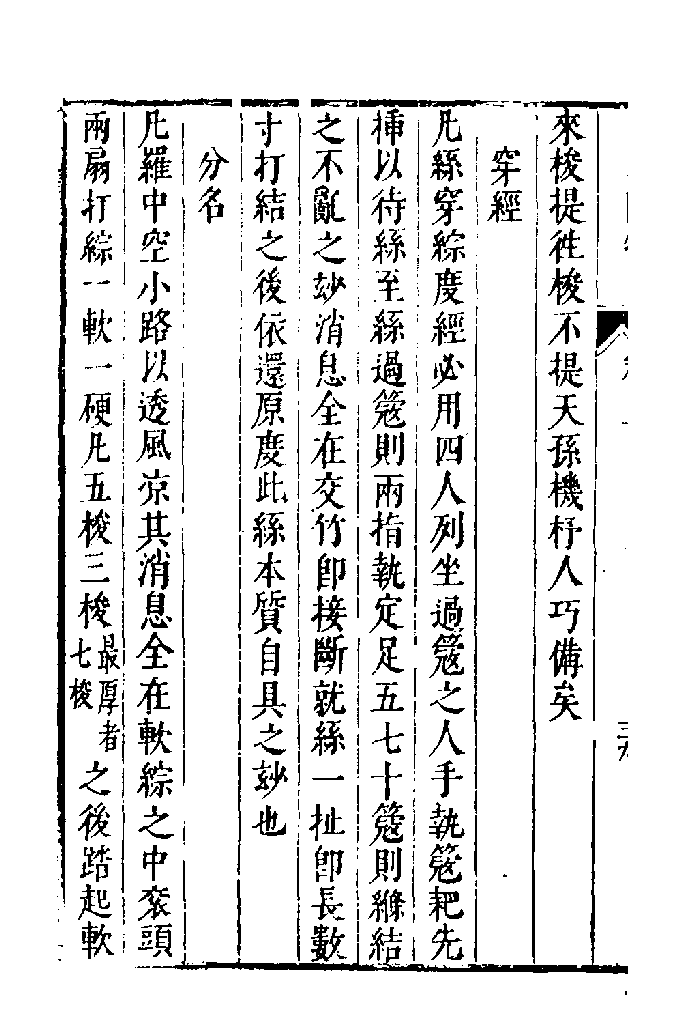 來梭提徃梭不提天孫機杼人巧備矣
穿經
凡絲穿綜度經必用四人列坐過筬之人手執筬耙先
揷以待絲至絲過筬則兩指執定足五七十筬則絛結
之不亂之玅消息全在交竹卽接斷就絲一扯卽長數
寸打結之後依還原度此絲本質自具之玅也
分名
凡羅中空小路以透風凉其消息全在軟綜之中衮頭
兩扇打綜一軟一硬凡五梭三梭最厚者七梭之後踏起軟